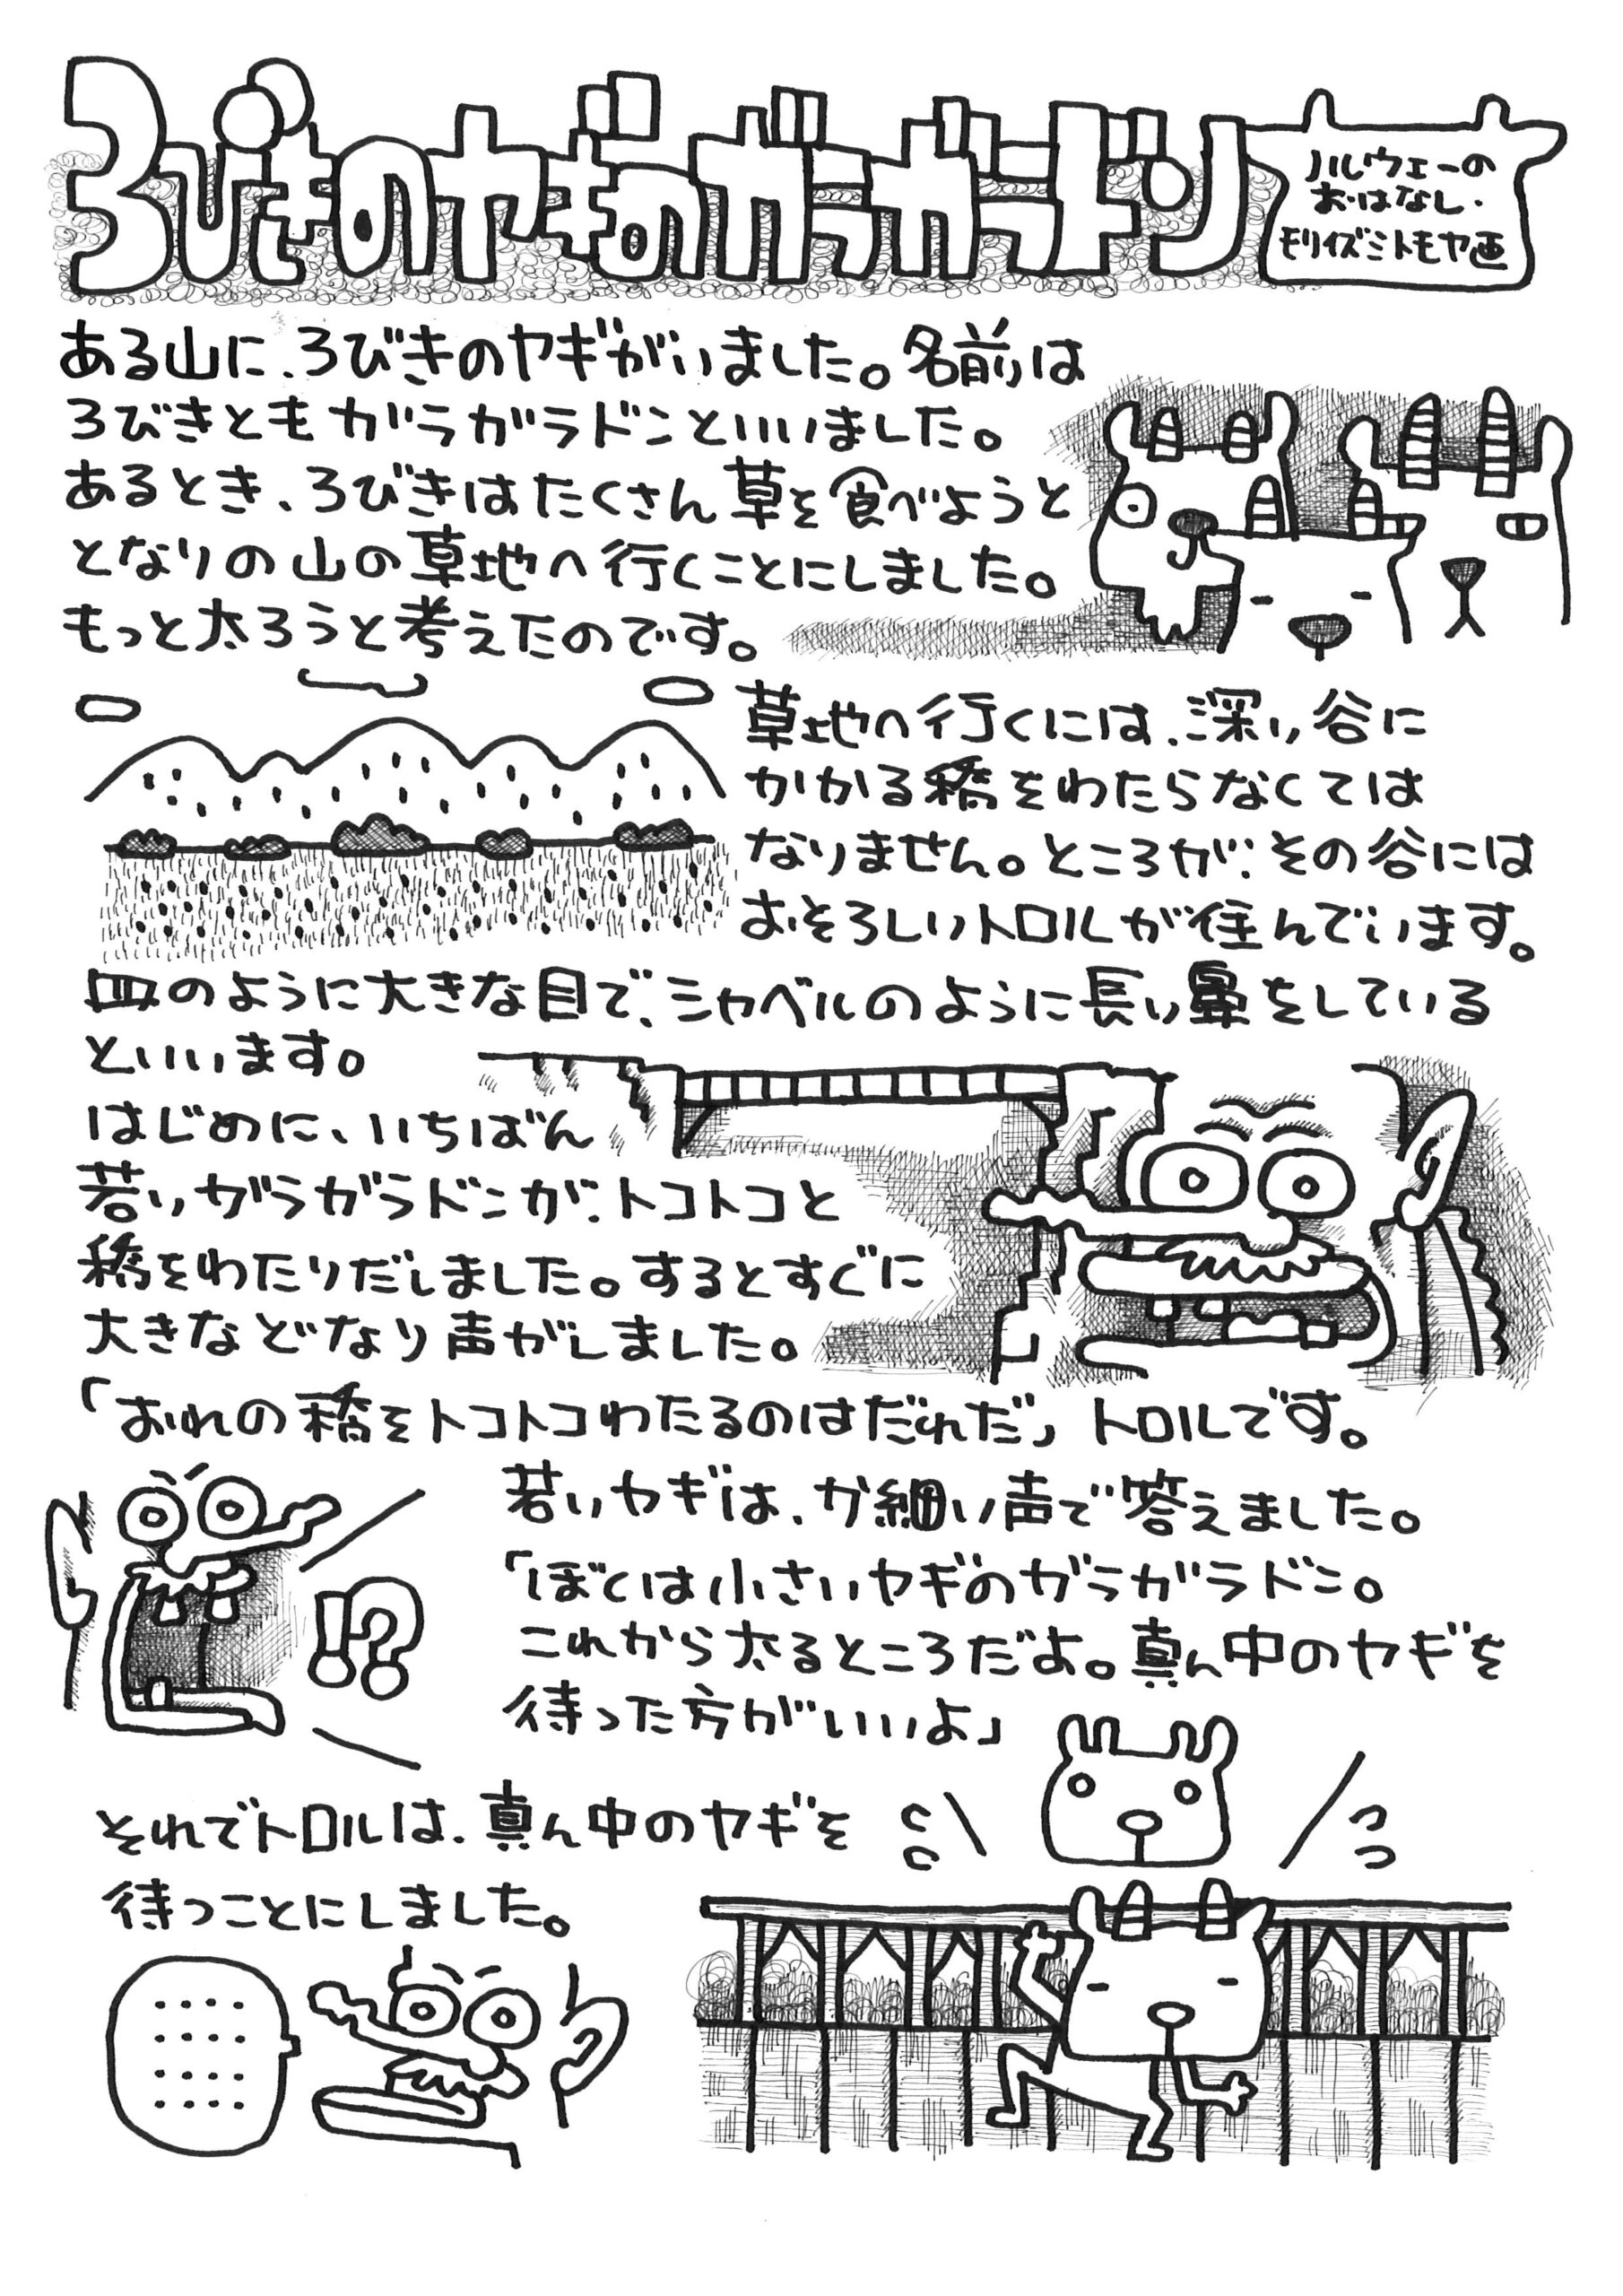 3びきのヤギのガラガラドン
ノルウェーの
おはなし・
モリイズミトモヤ画
ある山に、3びきのヤギがいました。名前は
3びきともガラガラドンといいました。
あるとき、3びきはたくさん草を食べようと
となりの山の草地へ行くことにしました。
もっと太ろうと考えたのです。
草地へ行くには、深い谷に
かかる橋をわたらなくては
なりません。ところが、その谷には
おそろしいトロルが住んでいます。
皿のように大きな目で、シャベルのように長い鼻をしている
といいます。
はじめに、いちばん
若いガラガラドンが、トコトコと
橋をわたりだしました。するとすぐに
大きなどなり声がしました。
「おれの橋をトコトコわたるのはだれだ」トロルです。
若いヤギは、か細い声で答えました。
「ぼくは小さいヤギのガラガラドン。
これから太るところだよ。真ん中のヤギを
待った方がいいよ」
!?
それでトロルは、真ん中のヤギを
待つことにしました。